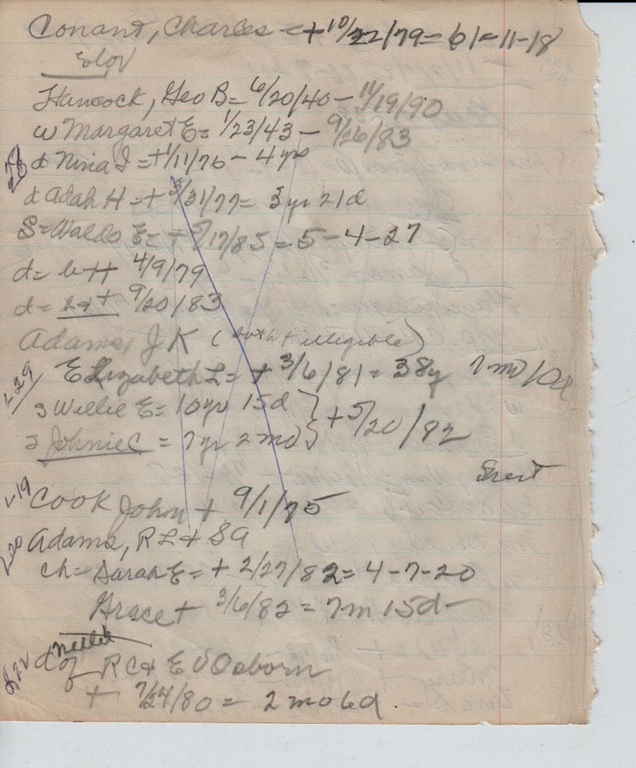 Conant, Charles = + 10/22/79 = 61-11-18
Hancock, Geo B = 6/20/40 - 11/19/90
w Margaret E = 1/23/43 - 9/26/83
d Nina I = + 1/11/76 - 4 yr
d Adah H = + 3/31/77 = 3 yr 21d
S = Waldo E = + 5/17/85 = 5-4-27
d = b + 4/9/79
d = b + 9/20/83
Adams, J K (both + illegible)
L29 Elizabeth L = + 3/6/81 = 38y 7 mo 10d
s Willie E = 10 yr 15d } + 5/20/82
s Johnie C = 7 yr 2 mo
L19 Cook John + 9/1/75
L20 Adams, R L + SA
ch = Sarah E = + 2/27/82 = 4-7-20
Grace + 3/6/82 = 7m 15d
L22 Nellie d of R C & E V Osborn
+ 7/24/80 = 2 mo 6d.